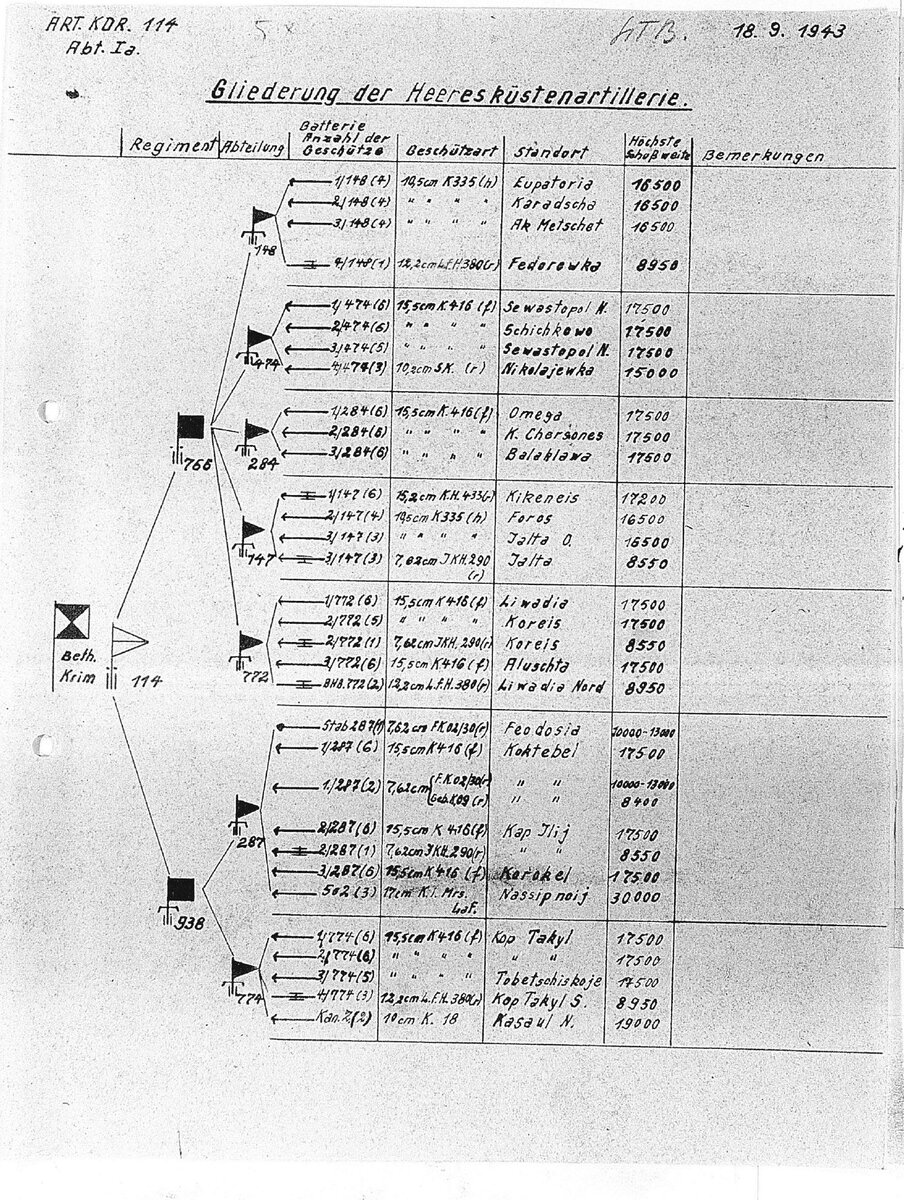 ART. KDR. 114 5x KTB. 18. 9. 1943
Abt. Ia.
Gliederung der Heeresküstenartillerie.
Regiment Abteilung Batterie Anzahl der Geschütze Geschützart Standort Höchste Schußweite Bemerkungen
1/148 (4) 10,5cm K335 (h) Eupatoria 16500
2/148 (4) " " " " Karadscha 16500
3/148 (4) " " " " Ak Metschet 16500
148
4/148 (1) 12,2cm l.F.H.380(r) Fedorowka 8950
1/474 (6) 15,5cm K416 (f) Sewastopol N. 17500
2/474 (6) " " " " Schichkowo 17500
3/474 (5) " " " " Sewastopol N. 17500
474
4/474 (3) 10,2cm S.K. (r) Nikolajewka 15000
1/284 (6) 15,5cm K416 (f) Omega 17500
2/284 (6) " " " " K. Chersones 17500
3/284 (6) " " " " Balaklawa 17500
766 284
1/147 (6) 15,2cm K.H. 433(r) Kikeneis 17200
2/147 (4) 10,5cm K335 (h) Foros 16500
3/147 (3) " " " " Jalta O. 16500
147
3/147 (3) 7,62cm JKH. 290 (r) Jalta 8550
1/772 (6) 15,5cm K416 (f) Liwadia 17500
2/772 (5) " " " " Koreis 17500
2/772 (1) 7,62cm JKH. 290(r) Koreis 8550
3/772 (6) 15,5cm K416 (f) Aluschta 17500
772
BHB.772 (2) 12,2cm l.F.H.380(r) Liwadia Nord 8950
Beth.
Krim 114
Stab 287 7,62cm F.K.02/30(r) Feodosia 10000-13000
1/287 (6) 15,5cm K416 (f) Koktebel 17500
1/287 (2) 7,62cm F.K.02/30(r) " " 10000-13000
Geb.K09 (r) " " 8400
2/287 (6) 15,5cm K416 (f) Kap Ilij 17500
287
2/287 (1) 7,62cm JKH. 290(r) " " 8550
3/287 (6) 15,5cm K416 (f) Korokel 17500
502 (3) 17cm K.i. Mrs. Laf. Nassipnoij 30000
938
1/774 (6) 15,5cm K416 (f) Kop Takyl 17500
2/774 (6) " " " " " " 17500
3/774 (5) " " " " Tobetschiskoje 17500
774
4/774 (3) 12,2cm l.F.H.380(r) Kop Takyl S. 8950
10cm K. 18 Kasaul N. 19000